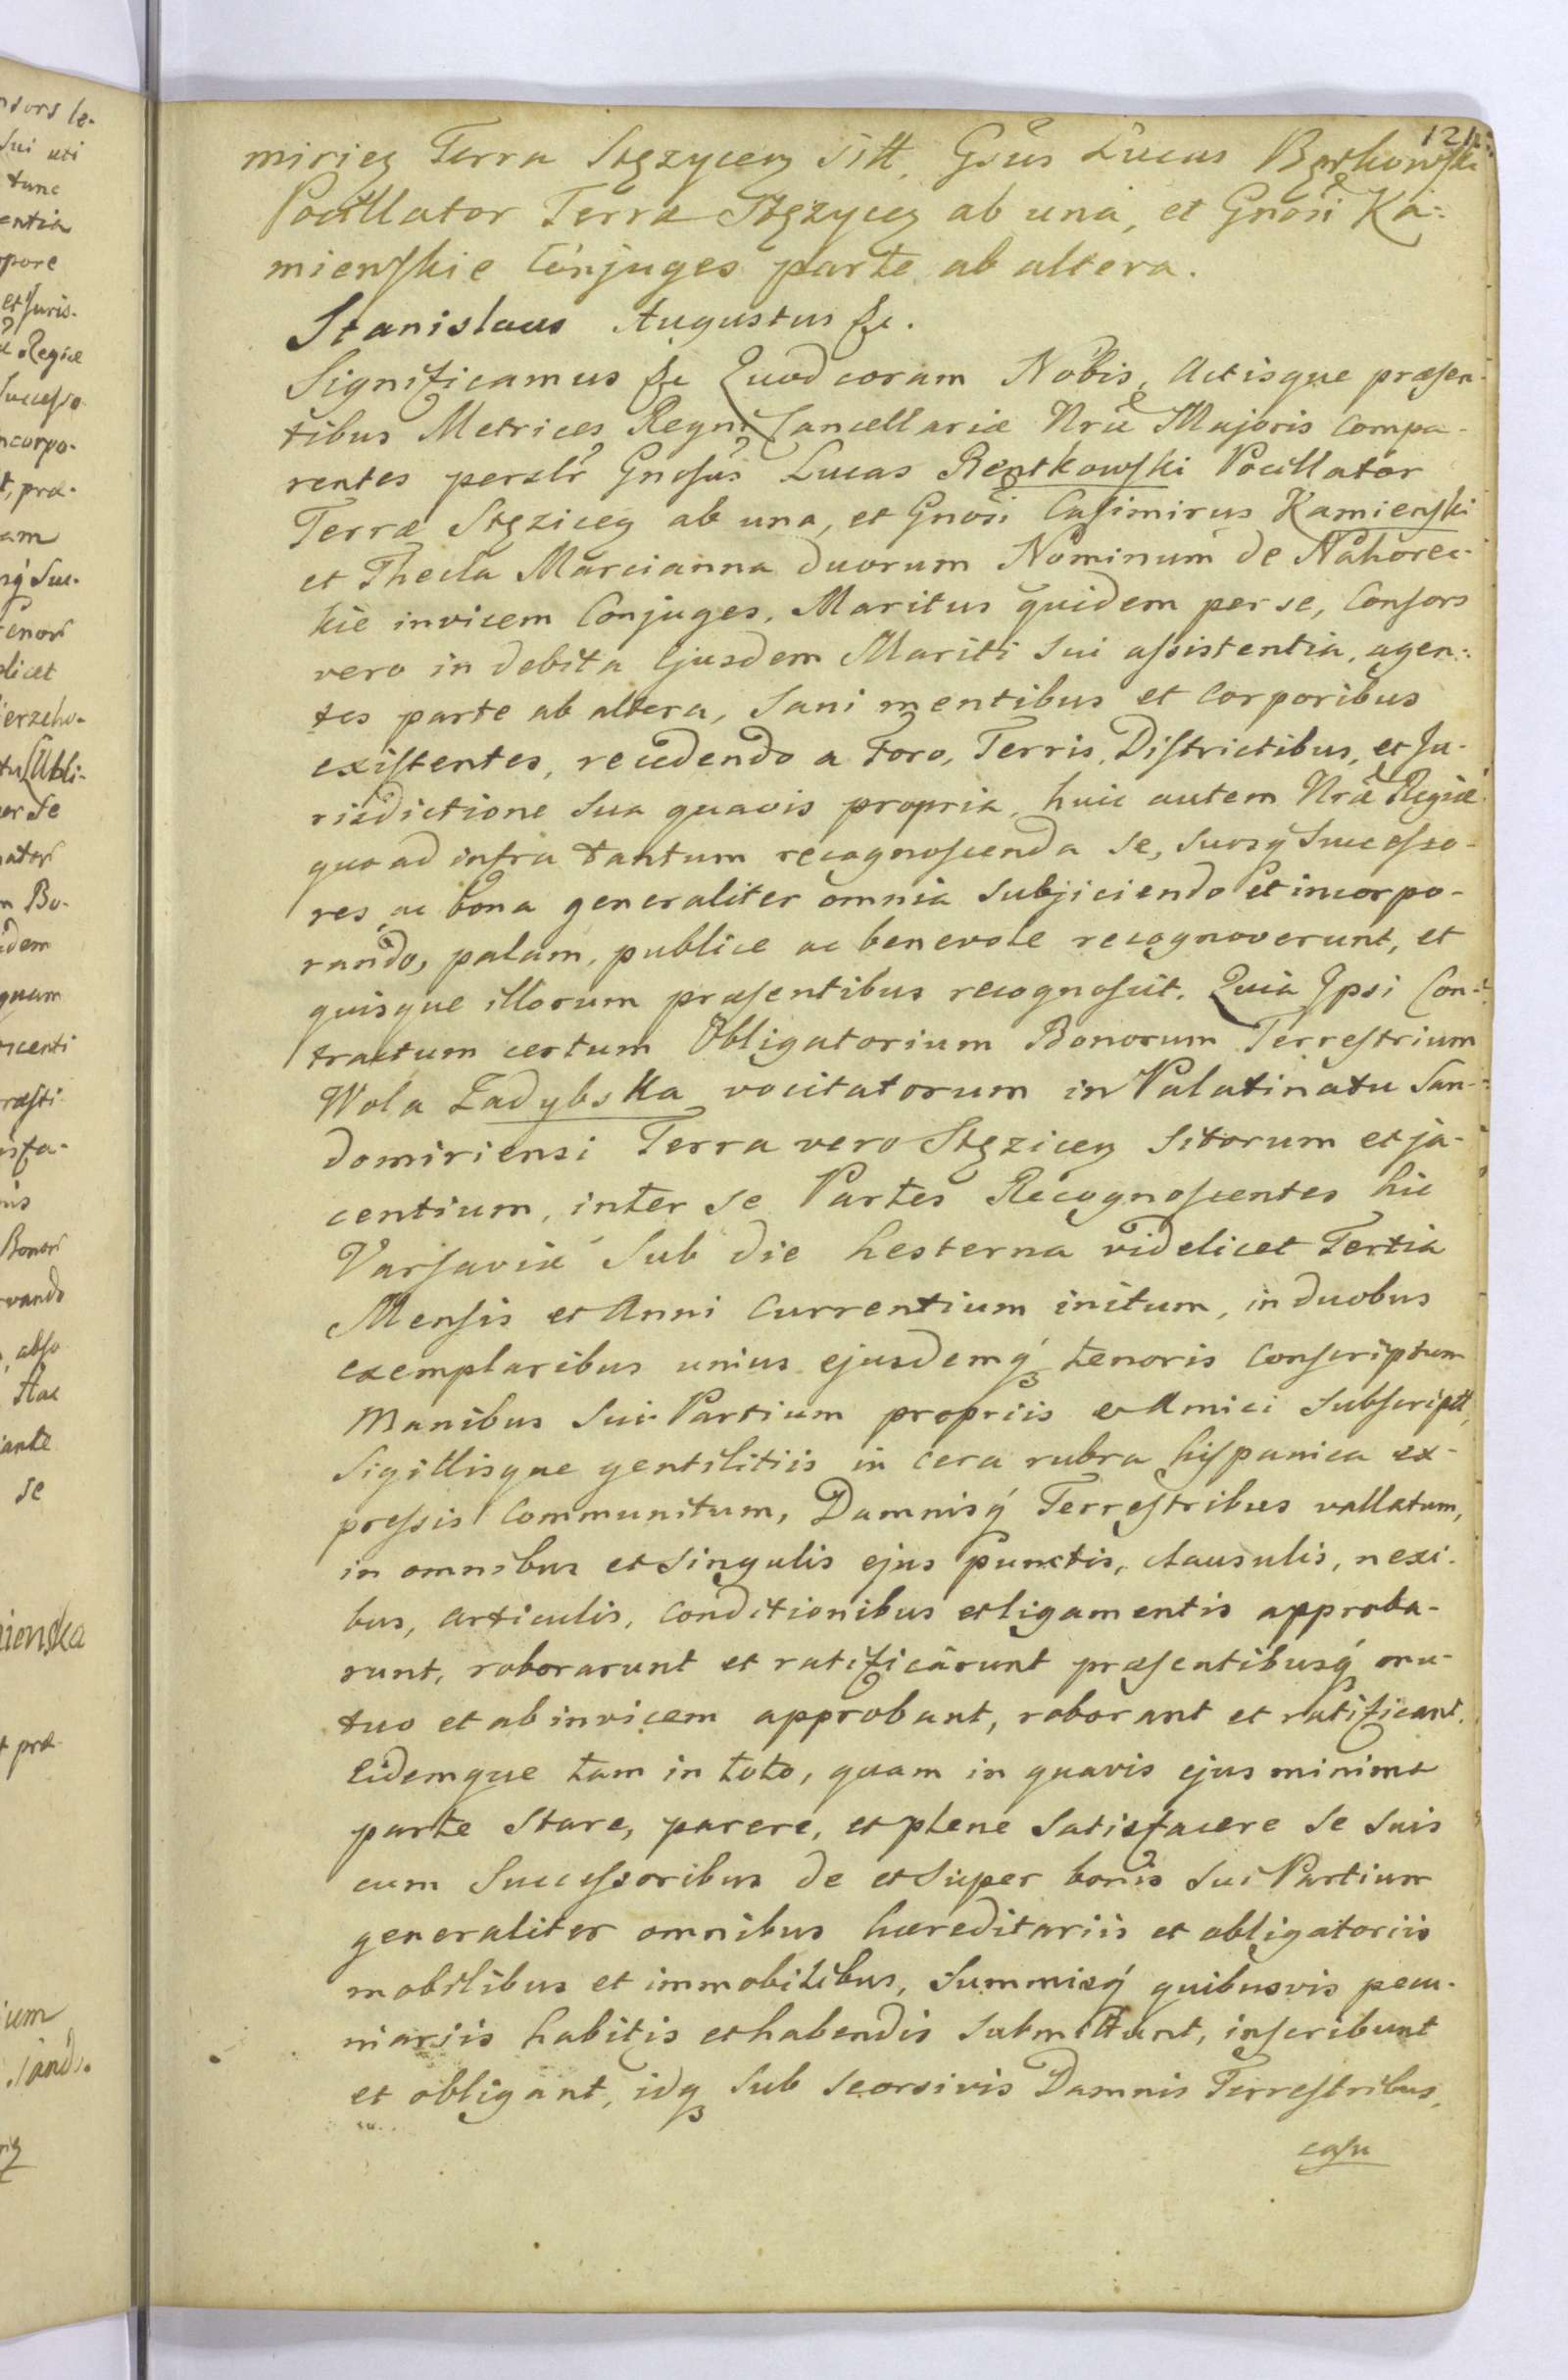 121.
miriez Terra Stęzycen sitt, Gsus Lucas Bętkowski
Pocillator Terræ Stęzycen ab una, et Gnosi Ka=
mienskie Conjuges parte ab altera.
Stanislaus Augustus &c.
Significamus &c Quod coram Nobis, Actisque præsen-
tibus Metrices Regni Cancellariæ Nræ Majoris Compa-
rentes perslr Gnosus Lucas Rętkowski Pocillator
Terræ Stęzicen ab una, et Gnosi Casimirus Kamienski
et Thecla Marcianna duorum Nominum de Nahorec-
kie invicem Conjuges, Maritus quidem per se, Consors
vero in debita Ejusdem Mariti sui assistentia, agen=
tes parte ab altera, Sani mentibus et Corporibus
existentes, recedendo a Foro, Terris, Districtibus, et Ju-
risdictione sua quavis propria, huic autem Nræ Regiæ
quo ad infra tantum recognoscenda se, suosq Successo-
res, ac bona generaliter omnia subjiciendo et incorpo-
rando, palam, publice ac benevole recognoverunt, et
quisque illorum præsentibus recognoscit. Quia Ipsi Con=
tractum certum Obligatorium Bonorum Terrestrium
Wola Zadybska vocitatorum in Palatinatu San=
domiriensi Terra vero Stęzicen Sitorum et ja-
centium, inter se Partes Recognoscentes hic
Varsaviæ sub die hesterna videlicet Tertia
Mensis et Anni Currentium initum, in duobus
exemplaribus unius ejusdemq tenoris Conscriptum
Manibus sui Partium propriis et Amici Subscriptt,
Sigillisque gentilitiis in cera rubra hispanica ex-
pressis Communitum, Damnisq Terrestribus vallatum,
in omnibus et singulis ejus Punctis, clausulis, nexi-
bus, articulis, Conditionibus et ligamentis approba-
runt, roborarunt et ratificarunt præsentibusq mu-
tuo et ab invicem approbant, roborant et ratificant.
Eidemque tam in toto, quam in quavis ejus minima
parte Stare, parere, et plene Satisfacere se suis
cum Successoribus de et super bonis sui Partium
generaliter omnibus hæreditariis et obligatoriis
mobilibus et immobilibus, Summisq quibusvis pecu-
niariis habitis et habendis submittunt, inscribunt
et obligant, idq sub seorsivis Damnis Terrestribus,
casu